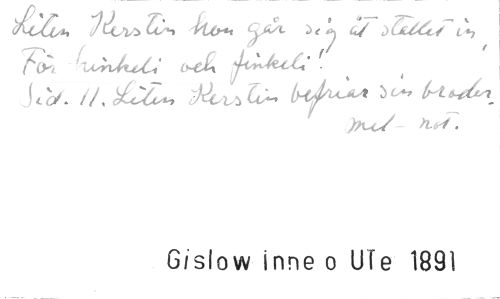 Liten Kerstin hon går sig åt stallet in,
För hinkeli och finkeli!
Sid. 11. Liten Kerstin befriar sin broder.
mel- not.
Gislow inne o UTe 1891